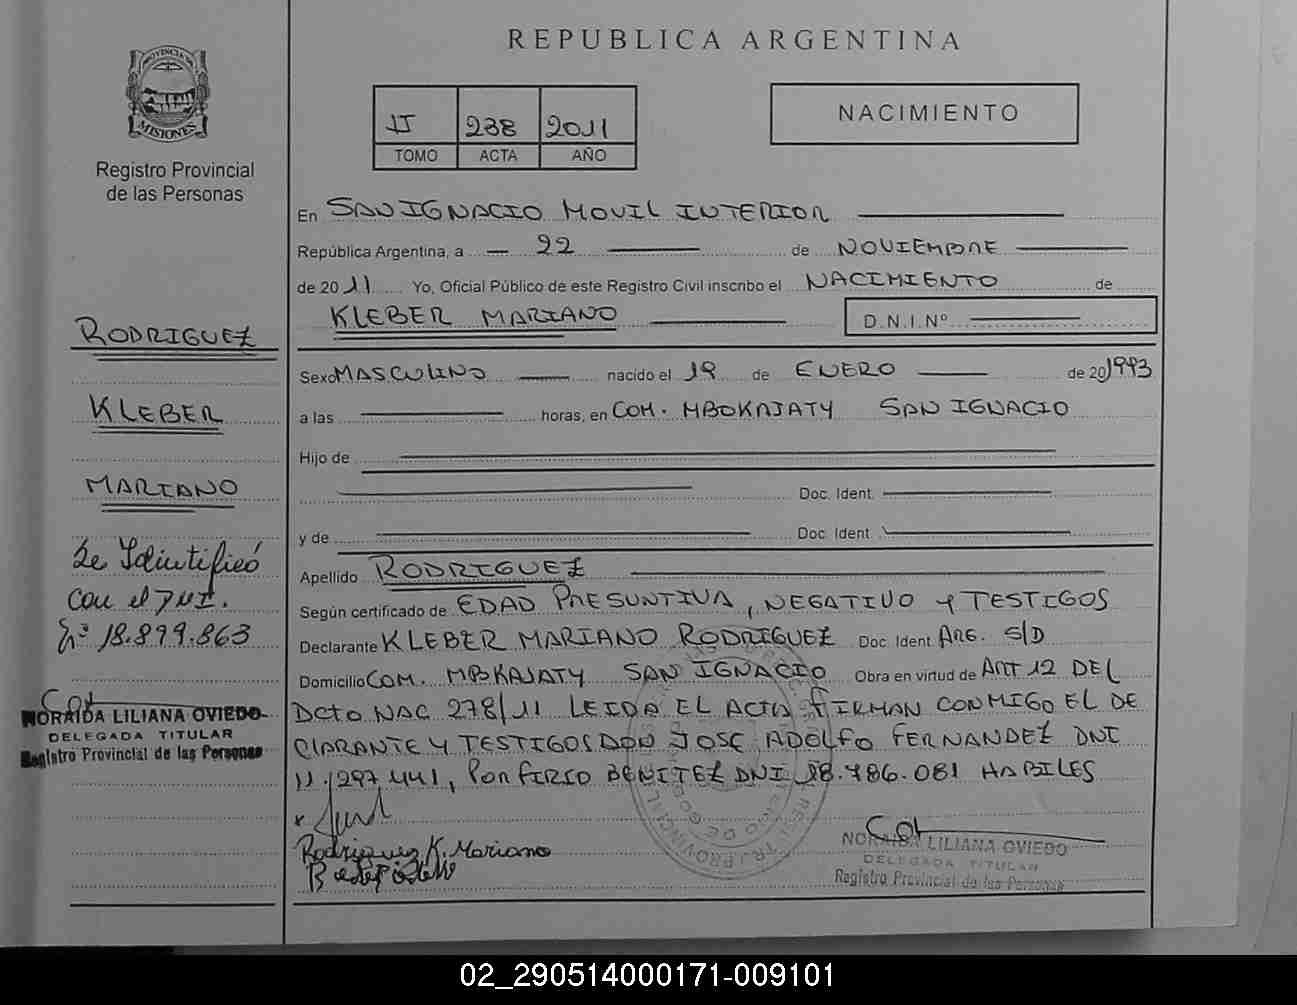 REPUBLICA ARGENTINA
PROVINCIA DE
MISIONES
Registro Provincial
de las Personas
II 238 2011
TOMO ACTA AÑO
NACIMIENTO
En SAN IGNACIO MOVIL INTERIOR
República Argentina, a 22 de NOVIEMBRE
de 2011 Yo, Oficial Público de este Registro Civil inscribo el NACIMIENTO de
KLEBER MARIANO D.N.I.Nº
Sexo MASCULINO nacido el 19 de ENERO de 20 1993
a las horas, en COM. MBOKAJATY SAN IGNACIO
Hijo de
Doc. Ident.
y de Doc. Ident.
Apellido RODRIGUEZ
Según certificado de EDAD PRESUNTIVA, NEGATIVO Y TESTIGOS
Declarante KLEBER MARIANO RODRIGUEZ Doc. Ident. ARG. S/D
Domicilio COM. MBOKAJATY SAN IGNACIO Obra en virtud de ART 12 DEL
DCTO NAC 278/11 LEIDA EL ACTA FIRMAN CONMIGO EL DE
CLARANTE Y TESTIGOS DON JOSE ADOLFO FERNANDEZ DNI
11.297.441, PORFIRIO BENITEZ DNI 18.786.081 HABILES
Rodriguez K. Mariano
NORAIDA LILIANA OVIEDO
DELEGADA TITULAR
Registro Provincial de las Personas
RODRIGUEZ
KLEBER
MARIANO
Se Identificó
con el DNI.
Nº 18.899.863
NORAIDA LILIANA OVIEDO
DELEGADA TITULAR
Registro Provincial de las Personas
02_290514000171-009101